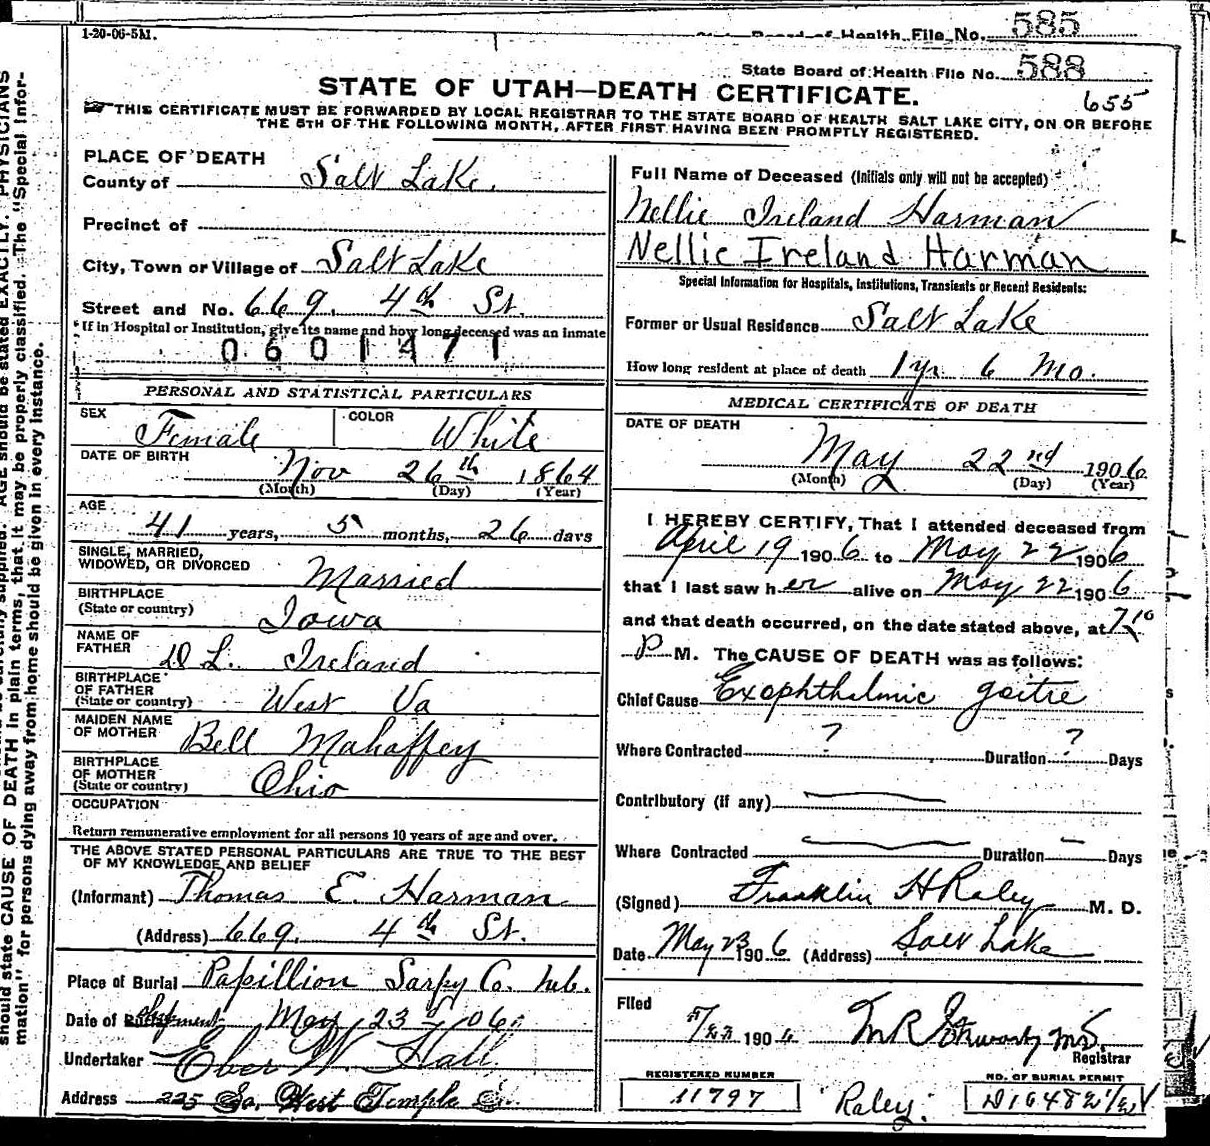 1-20-06-5M.
State Board of Health File No. 585
State Board of Health File No. 588
STATE OF UTAH—DEATH CERTIFICATE.
655
THIS CERTIFICATE MUST BE FORWARDED BY LOCAL REGISTRAR TO THE STATE BOARD OF HEALTH SALT LAKE CITY, ON OR BEFORE
THE 5TH OF THE FOLLOWING MONTH, AFTER FIRST HAVING BEEN PROMPTLY REGISTERED.
PLACE OF DEATH
County of Salt Lake.
Precinct of
City, Town or Village of Salt Lake
Street and No. 669. 4th St.
If in Hospital or Institution, give its name and how long deceased was an inmate
0601471
PERSONAL AND STATISTICAL PARTICULARS
SEX Female COLOR White
DATE OF BIRTH Nov 26th 1864
(Month) (Day) (Year)
AGE 41 years, 5 months, 26 days
SINGLE, MARRIED,
WIDOWED, OR DIVORCED Married
BIRTHPLACE
(State or country) Iowa
NAME OF
FATHER D L. Ireland
BIRTHPLACE
OF FATHER
(State or country) West Va
MAIDEN NAME
OF MOTHER Bell Mahaffey
BIRTHPLACE
OF MOTHER
(State or country) Ohio
OCCUPATION
Return remunerative employment for all persons 10 years of age and over.
THE ABOVE STATED PERSONAL PARTICULARS ARE TRUE TO THE BEST
OF MY KNOWLEDGE AND BELIEF
(Informant) Thomas E. Harman
(Address) 669. 4th St.
Place of Burial Papillion Sarpy Co. Neb.
Date of Shipment May 23 06
Undertaker Eber W. Hall
Address 225 So. West Temple St.
Full Name of Deceased (Initials only will not be accepted)
Nellie Ireland Harman
Nellie Ireland Harman
Special Information for Hospitals, Institutions, Transients or Recent Residents:
Former or Usual Residence Salt Lake
How long resident at place of death 1 yr 6 Mo.
MEDICAL CERTIFICATE OF DEATH
DATE OF DEATH
May 22nd 1906
(Month) (Day) (Year)
I HEREBY CERTIFY, That I attended deceased from
April 19 1906 to May 22 1906
that I last saw her alive on May 22 1906
and that death occurred, on the date stated above, at 7 10
P M. The CAUSE OF DEATH was as follows:
Chief Cause Exophthalmic goitre
Where Contracted ? Duration ? Days
Contributory (if any)
Where Contracted Duration — Days
(Signed) Franklin H Raley M. D.
Date May 23 1906 (Address) Salt Lake
Filed 5/23 1906
Registrar
REGISTERED NUMBER
11797
Raley.
NO. OF BURIAL PERMIT
should state CAUSE OF DEATH in plain terms, that it may be properly classified. The "Special Infor-
mation" for persons dying away from home should be given in every instance.